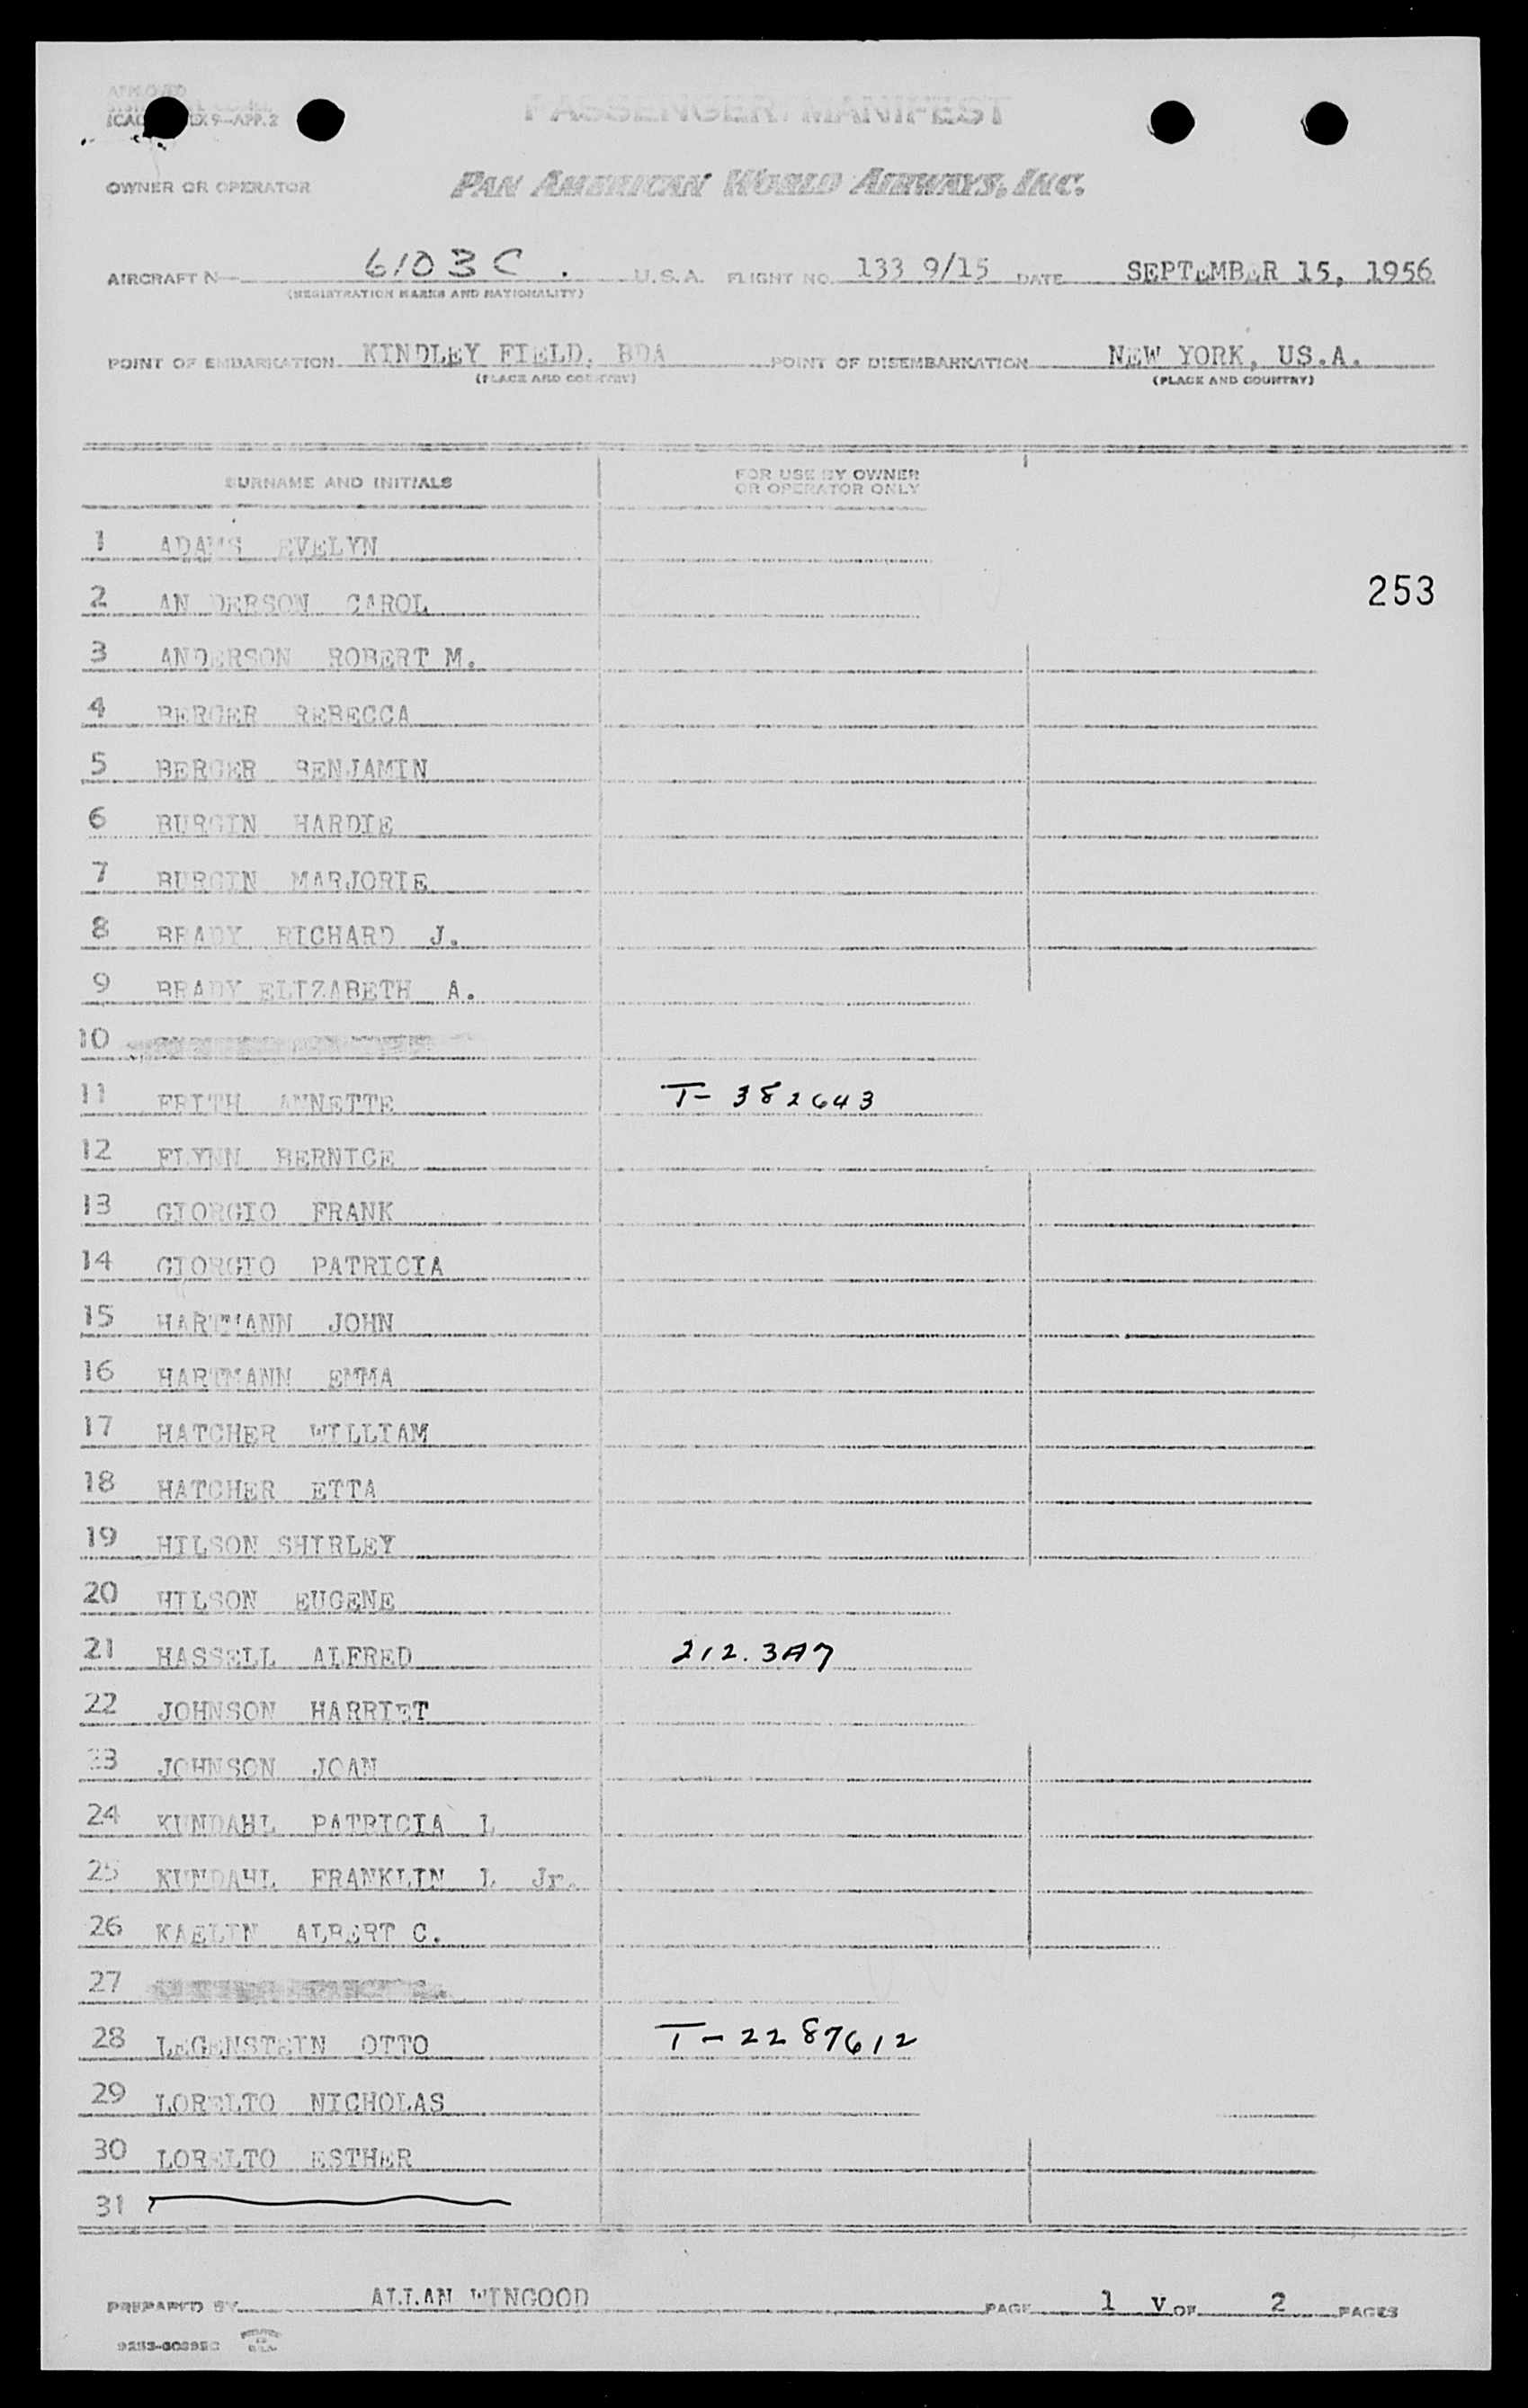 APPROVED
9-APP. 2
PASSENGER MANIFEST
OWNER OR OPERATOR PAN AMERICAN WORLD AIRWAYS, INC.
AIRCRAFT N- 6103C . U.S.A. FLIGHT NO. 133 9/15 DATE SEPTEMBER 15, 1956
(REGISTRATION MARKS AND NATIONALITY)
POINT OF EMBARKATION KINDLEY FIELD, BDA POINT OF DISEMBARKATION NEW YORK, US.A.
(PLACE AND COUNTRY) (PLACE AND COUNTRY)
SURNAME AND INITIALS FOR USE BY OWNER
OR OPERATOR ONLY
1 ADAMS EVELYN
2 AN DERSON CAROL
253
3 ANDERSON ROBERT M.
4 BERGER REBECCA
5 BERGER BENJAMIN
6 BURGIN HARDIE
7 BURGIN MARJORIE
8 BRADY RICHARD J.
9 BRADY ELIZABETH A.
10
11 FRITH ANNETTE T- 382643
12 FLYNN BERNICE
13 GIORGIO FRANK
14 GIORGIO PATRICIA
15 HARTMANN JOHN
16 HARTMANN EMMA
17 HATCHER WILLIAM
18 HATCHER ETTA
19 HILSON SHIRLEY
20 HILSON EUGENE
21 HASSELL ALFRED 212.3A7
22 JOHNSON HARRIET
23 JOHNSON JOAN
24 KUNDAHL PATRICIA L
25 KUNDAHL FRANKLIN L Jr.
26 KAELIN ALBERT C.
27
28 LEGENSTEIN OTTO T-2287612
29 LORELTO NICHOLAS
30 LORELTO ESTHER
31
PREPARED BY ALLAN WINGOOD PAGE 1 V OF 2 PAGES